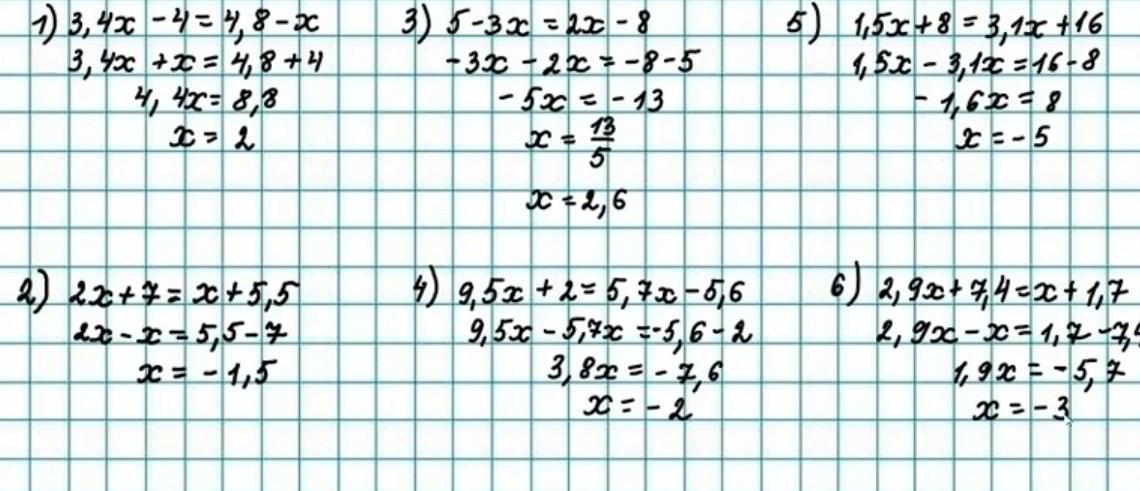 1) 3,4x - 4 = 4,8 - x
3,4x + x = 4,8 + 4
4,4x = 8,8
x = 2
3) 5 - 3x = 2x - 8
-3x - 2x = -8 - 5
-5x = -13
x = 13/5
x = 2,6
5) 1,5x + 8 = 3,1x + 16
1,5x - 3,1x = 16 - 8
-1,6x = 8
x = -5
2) 2x + 7 = x + 5,5
2x - x = 5,5 - 7
x = -1,5
4) 9,5x + 2 = 5,7x - 5,6
9,5x - 5,7x = -5,6 - 2
3,8x = -7,6
x = -2
6) 2,9x + 7,4 = x + 1,7
2,9x - x = 1,7 - 7,4
1,9x = -5,7
x = -3